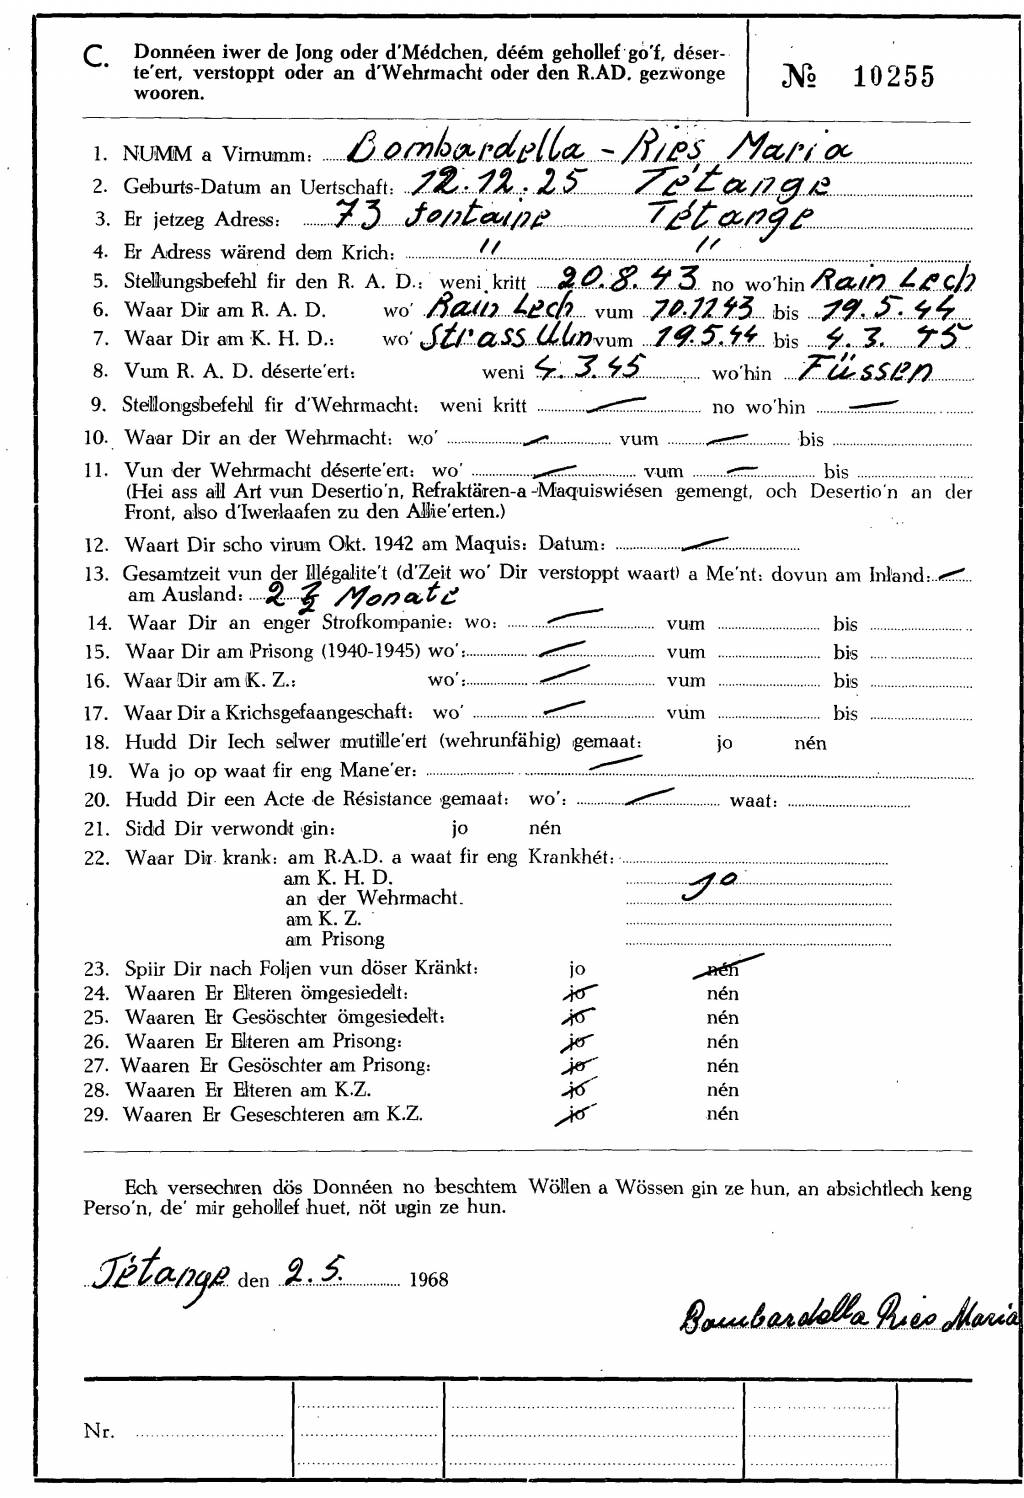 C. Donnéen iwer de Jong oder d'Médchen, déém gehollef gó'f, déser-
te'ert, verstoppt oder an d'Wehrmacht oder den R.AD. gezwonge
wooren.
№ 10255
1. NUMM a Virnumm: Bombardella - Ries Maria
2. Geburts-Datum an Uertschaft: 12.12.25 Tétange
3. Er jetzeg Adress: 73 fontaine Tétange
4. Er Adress wärend dem Krich: " "
5. Stellungsbefehl fir den R. A. D.: weni kritt 20.8.43 no wo'hin Rain Lech
6. Waar Dir am R. A. D. wo' Rain Lech vum 10.1243 bis 19.5.44
7. Waar Dir am K. H. D.: wo' Strass Ulm vum 19.5.44 bis 4.3. 45
8. Vum R. A. D. déserte'ert: weni 4.3.45 wo'hin Füssen
9. Stellongsbefehl fir d'Wehrmacht: weni kritt — no wo'hin —
10. Waar Dir an der Wehrmacht: wo' — vum — bis
11. Vun der Wehrmacht déserte'ert: wo' — vum — bis
(Hei ass all Art vun Desertio'n, Refraktären-a-Maquiswiésen gemengt, och Desertio'n an der
Front, also d'Iwerlaafen zu den Allie'erten.)
12. Waart Dir scho virum Okt. 1942 am Maquis: Datum: —
13. Gesamtzeit vun der Illégalite't (d'Zeit wo' Dir verstoppt waart) a Me'nt: dovun am Inland: —
am Ausland: 2 1/2 Monate
14. Waar Dir an enger Strofkompanie: wo: — vum bis
15. Waar Dir am Prisong (1940-1945) wo': — vum bis
16. Waar Dir am K. Z.: wo': — vum bis
17. Waar Dir a Krichsgefaangeschaft: wo' — vum bis
18. Hudd Dir Iech selwer mutille'ert (wehrunfähig) gemaat: jo nén
19. Wa jo op waat fir eng Mane'er: —
20. Hudd Dir een Acte de Résistance gemaat: wo': — waat:
21. Sidd Dir verwondt gin: jo nén
22. Waar Dir krank: am R.A.D. a waat fir eng Krankhét:
am K. H. D. jo
an der Wehrmacht.
am K. Z.
am Prisong
23. Spiir Dir nach Foljen vun döser Kränkt: jo nén
24. Waaren Er Elteren ömgesiedelt: jo nén
25. Waaren Er Gesöschter ömgesiedelt: jo nén
26. Waaren Er Elteren am Prisong: jo nén
27. Waaren Er Gesöschter am Prisong: jo nén
28. Waaren Er Elteren am K.Z. jo nén
29. Waaren Er Geseschteren am K.Z. jo nén
Ech versechren dös Donnéen no beschtem Wöllen a Wössen gin ze hun, an absichtlech keng
Perso'n, de' mir gehollef huet, nöt ugin ze hun.
Tétange den 2.5. 1968
Bombardella Ries Maria
Nr.